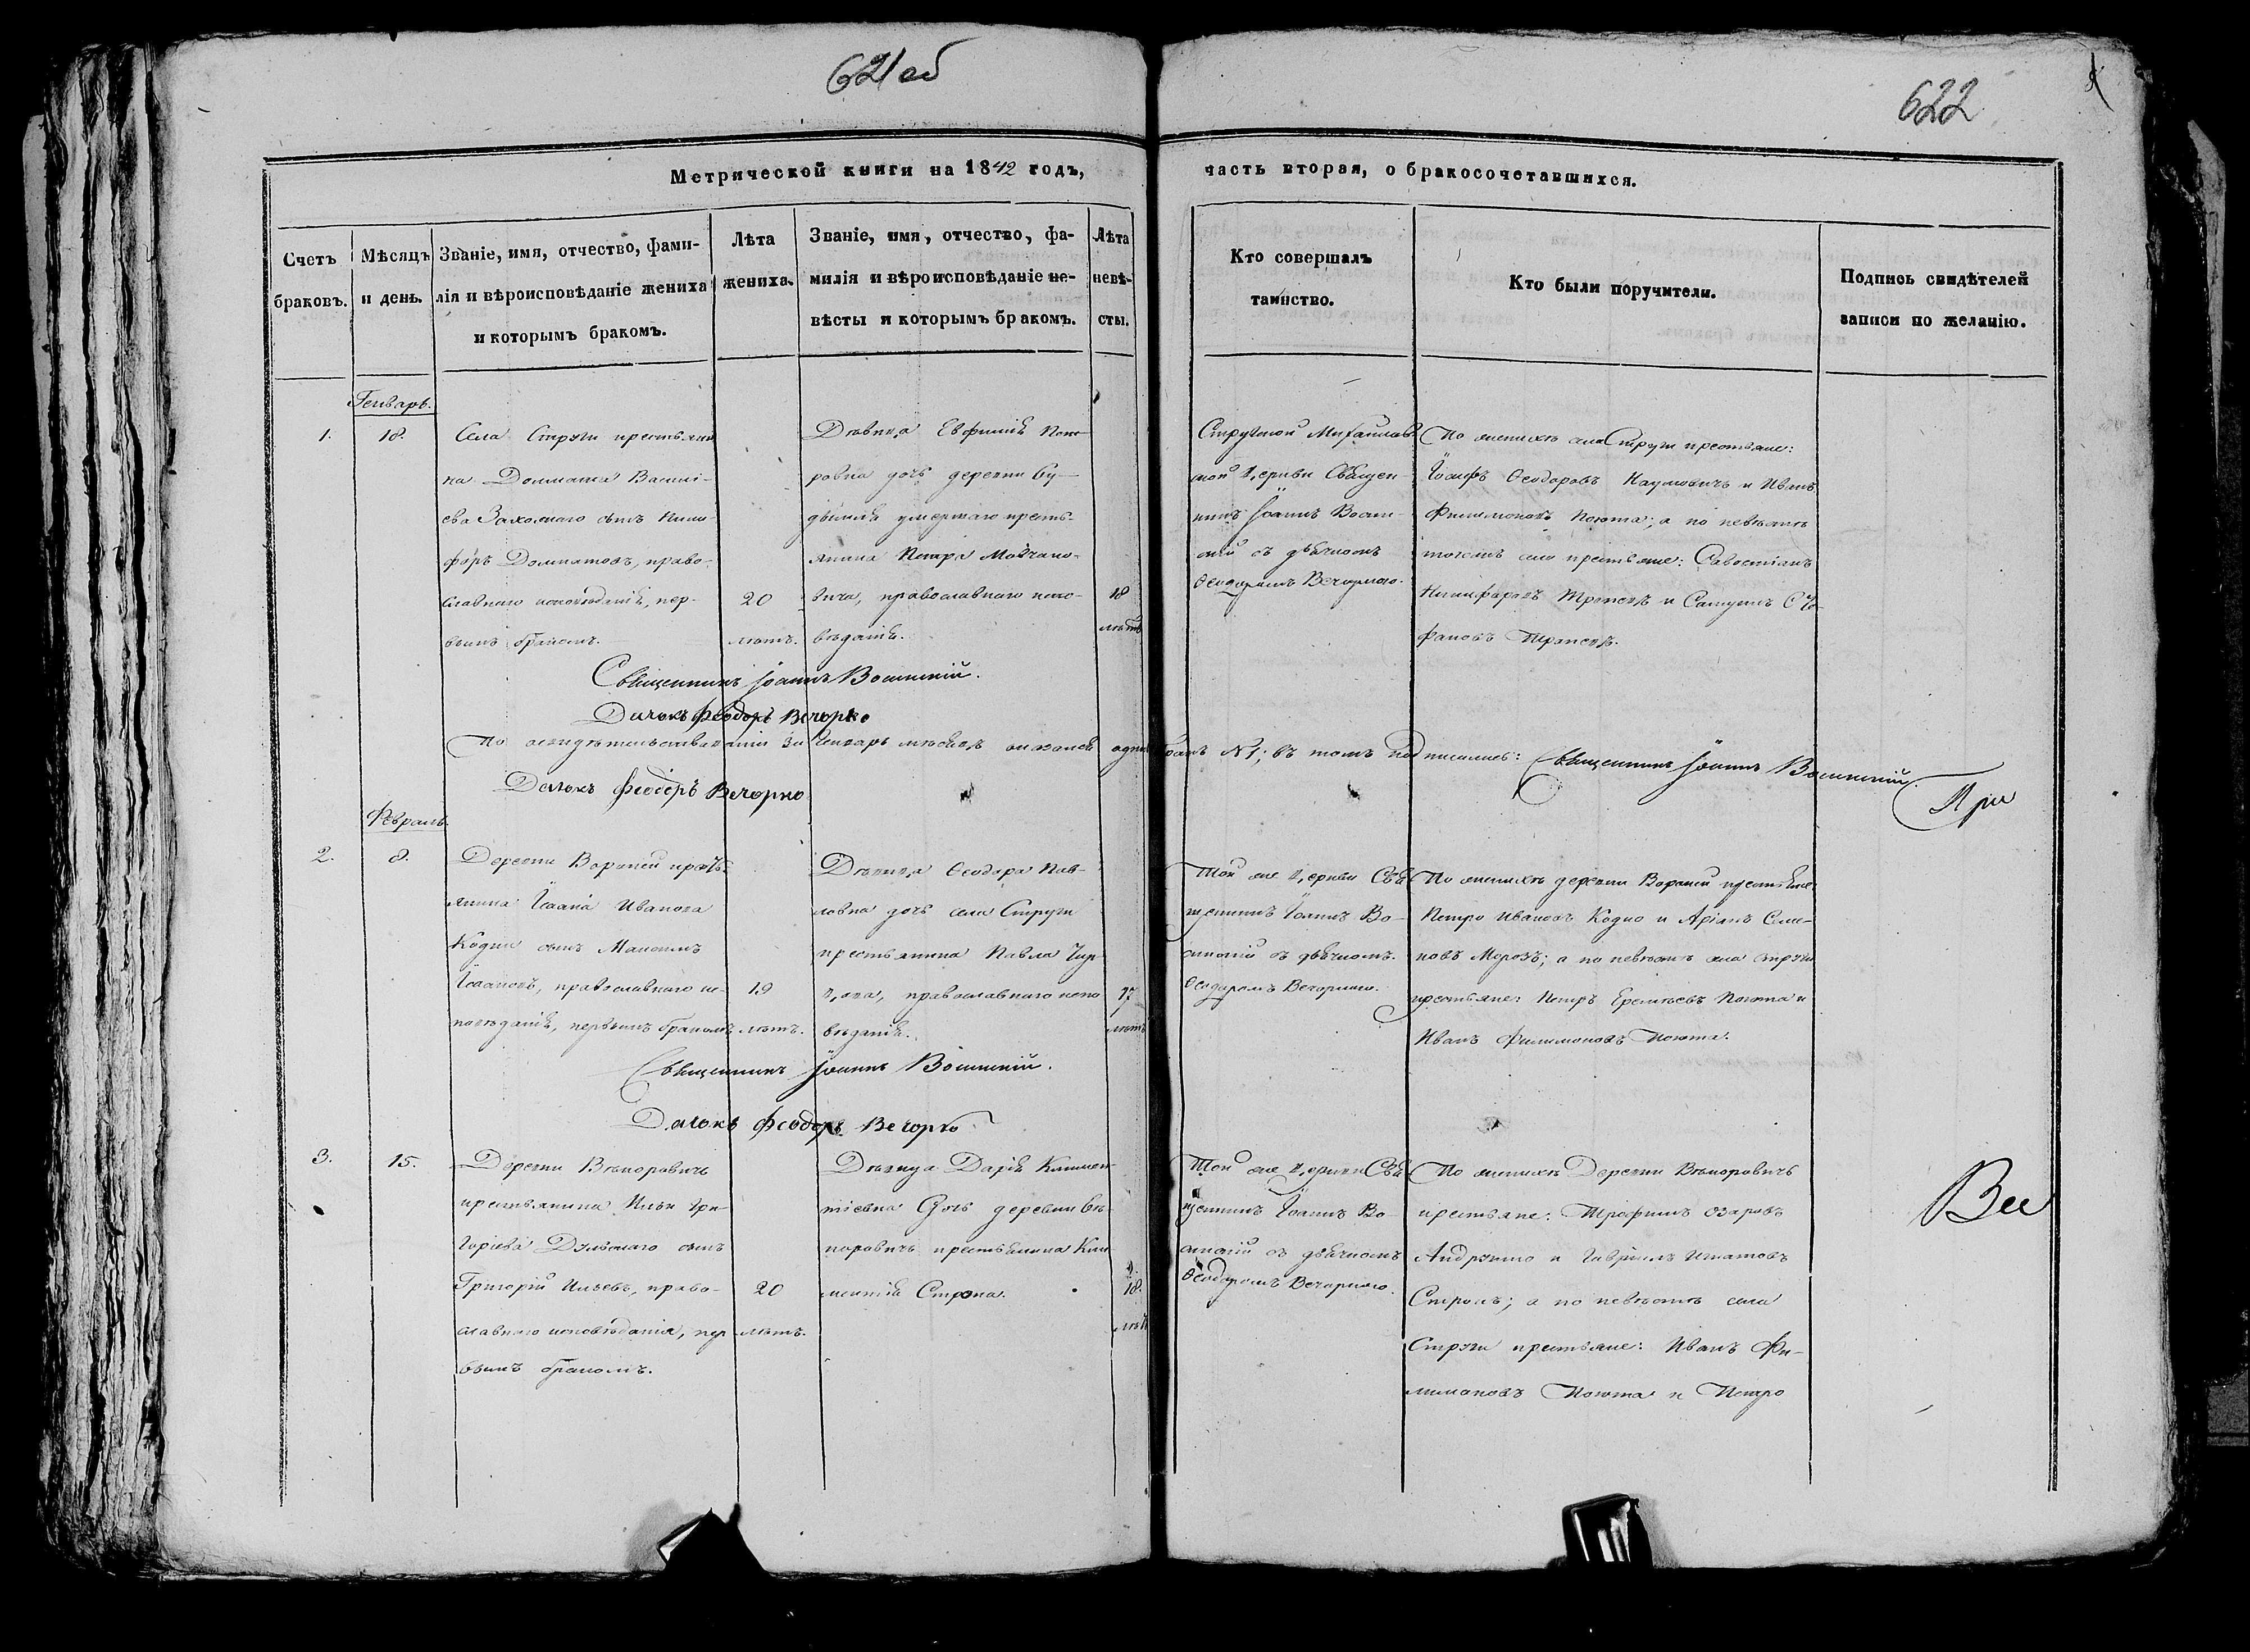 621 об
622
Метрической книги на 1842 годъ,
часть вторая, о бракосочетавшихся.
Счетъ
браковъ.
Мѣсяцъ
и день.
Званіе, имя, отчество, фами-
лія и вѣроисповѣданіе жениха
и которымъ бракомъ.
Лѣта
жениха.
Званіе, имя, отчество, фа-
милія и вѣроисповѣданіе не-
вѣсты и которымъ бракомъ.
Лѣта
невѣ-
сты.
Кто совершалъ
таинство.
Кто были поручители.
Подпись свидѣтелей
записи по желанію.
Генварь.
1.
18.
Села Струги крестьяни
на Долмата Васили-
ева сынъ Ники-
форъ Долматовъ, право-
славнаго исповѣданія, пер-
вымъ бракомъ.
20
лѣтъ.
Дѣвица Евфимія Пет-
ровна дочь деревни
умершаго кресть-
янина Петра Мовчано-
вича, православнаго испо-
вѣданія.
18
лѣтъ
Михайлов
ской церкви Священ
никъ Іоаннъ
съ дьячкомъ
Ѳеодоромъ Вечоркою.
По женихѣ села Струги крестьяне:
Іосифъ Ѳеодоровъ Наумовичъ и Иванъ
Филимоновъ Покота; а по невѣстѣ
тогожъ села крестьяне: Савостіанъ
Никифоровъ и Самуилъ Сте-
фановъ
Священникъ Іоаннъ
Дьячокъ Феодоръ Вечорко
По освидѣтельствованіи за Генварь мѣсяцъ оказался одинъ бракъ №1; въ томъ подписались: Священникъ Іоаннъ
Дьячокъ Феодоръ Вечорко
При
Февраль.
2.
8.
Деревни Вороней кресть-
янина Іоана Иванова
Кодки сынъ Максимъ
Іоановъ, православнаго ис-
повѣданія, первымъ бракомъ
19
лѣтъ.
Дѣвица Ѳеодора Пав-
ловна дочь села Струги
крестьянина Павла
православнаго испо
вѣданія.
17
лѣтъ
Той же церкви Свя
щенникъ Іоаннъ
съ дьячкомъ
Ѳеодоромъ Вечоркою.
По женихѣ деревни Вороней крестьяне
Петро Ивановъ Кодко и Аріанъ Семе-
новъ Морозъ; а по невѣстѣ села Струги
крестьяне: Петръ Еремѣевъ Покота и
Иванъ Филимоновъ Покота.
Священникъ Іоаннъ
Дьячокъ Феодоръ Вечорко
3.
15.
Деревни
крестьянина Ильи Гри-
горіева сынъ
Григорій Ильевъ, право-
славнаго исповѣданія, пер
вымъ бракомъ.
20
лѣтъ.
Дѣвица Дарія Климен
тіевна дочь деревни
крестьянина Кли
ментія Строка.
18.
лѣтъ
Той же церкви Свя
щенникъ Іоаннъ
съ дьячкомъ
Ѳеодоромъ Вечоркою.
По женихѣ Деревни
крестьяне: Трофимъ Озаровъ
и Гавріилъ Игнатовъ
а по невѣстѣ села
Струги крестьяне: Иванъ Фи-
лимоновъ Покота и Петро
Вее